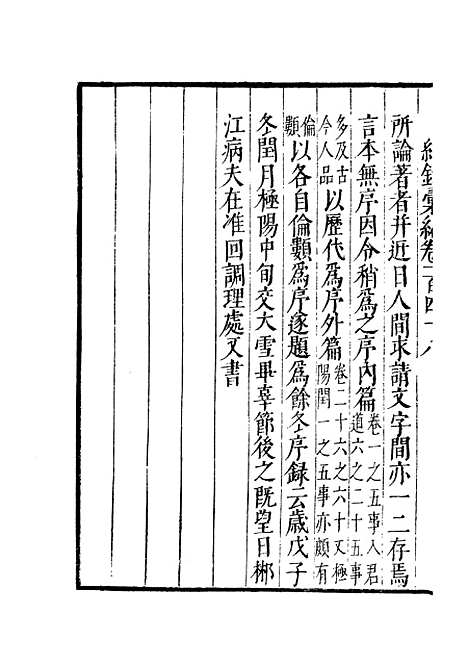 紀錄彙編卷一百四十八
所論著者并近日人間求請文字間亦一二存焉
言本無序因令稍爲之序内篇卷一之五事人君道六之二十五事
多及古今人品以歷代爲序外篇卷二十六之六十又極陽閏一之五事亦頗有
倫類以各自倫類爲序遂題爲餘冬序録云歲戊子
冬閏月極陽中旬交大雪畢辜節後之既望日郴
江病夫在准回調理處又書